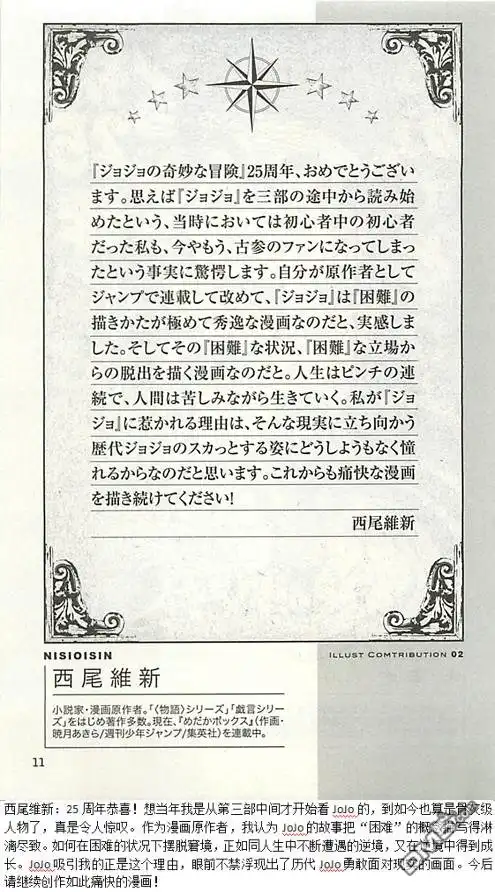 『ジョジョの奇妙な冒険』25周年、おめでとうござい
ます。思えば『ジョジョ』を三部の途中から読み始
めたという、当時においては初心者中の初心者
だった私も、今やもう、古参のファンになってしまっ
たという事実に驚愕します。自分が原作者として
ジャンプで連載して改めて、『ジョジョ』は『困難』の
描きかたが極めて秀逸な漫画なのだと、実感しま
した。そしてその『困難』な状況、『困難』な立場か
らの脱出を描く漫画なのだと。人生はピンチの連
続で、人間は苦しみながら生きていく。私が『ジョ
ジョ』に惹かれる理由は、そんな現実に立ち向かう
歴代ジョジョのスカっとする姿にどうしようもなく憧
れるからなのだと思います。これからも痛快な漫画
を描き続けてください!
西尾維新
NISIOISIN
ILLUST COMTRIBUTION 02
西尾維新
小説家・漫画原作者。「〈物語〉シリーズ」「戯言シリー
ズ」をはじめ著作多数。現在、『めだかボックス』(作画・
暁月あきら/週刊少年ジャンプ/集英社)を連載中。
11
西尾维新:25 周年恭喜!想当年我是从第三部中间才开始看 JoJo 的,到如今也算是骨灰级
人物了,真是令人惊叹。作为漫画原作者,我认为 JoJo 的故事把“困难”的概 写得淋
漓尽致。如何在困难的状况下摆脱窘境,正如同人生中不断遭遇的逆境,又在 中得到成
长。JoJo 吸引我的正是这个理由,眼前不禁浮现出了历代 JoJo 勇敢面对现 的画面。今后
请继续创作如此痛快的漫画!